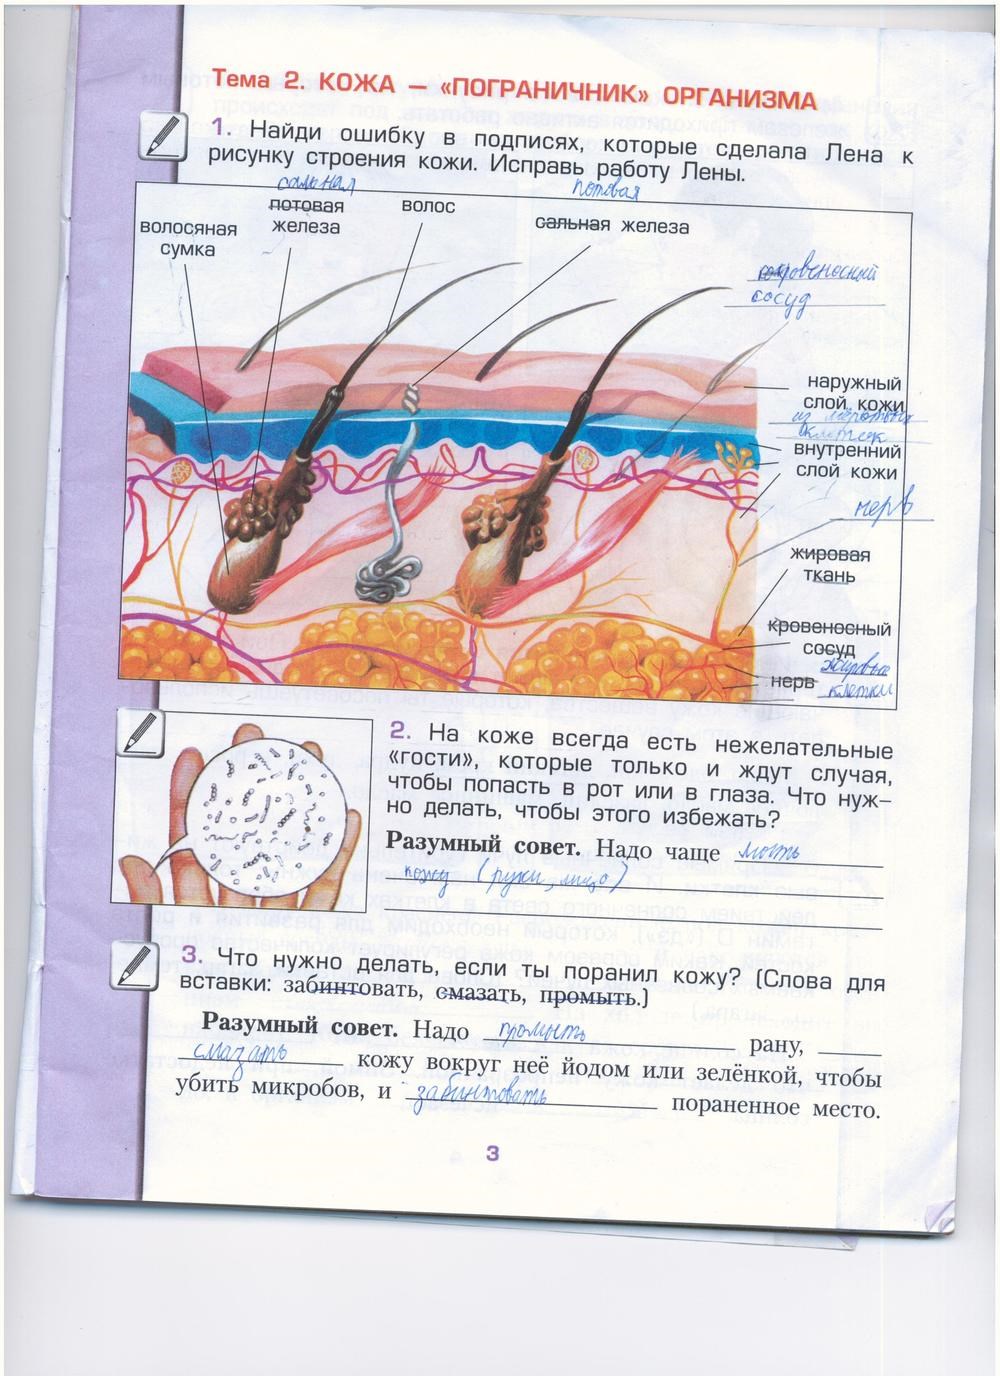 Тема 2. КОЖА — «ПОГРАНИЧНИК» ОРГАНИЗМА
1. Найди ошибку в подписях, которые сделала Лена к
рисунку строения кожи. Исправь работу Лены.
сальная
потовая
волосяная
сумка
потовая
железа
волос
сальная железа
кровеносный
сосуд
наружный
слой кожи
из мёртвых
клеток
внутренний
слой кожи
нерв
жировая
ткань
кровеносный
сосуд
жировые
нерв клетки
2. На коже всегда есть нежелательные
«гости», которые только и ждут случая,
чтобы попасть в рот или в глаза. Что нуж-
но делать, чтобы этого избежать?
Разумный совет. Надо чаще мыть
кожу (руки, лицо)
3. Что нужно делать, если ты поранил кожу? (Слова для
вставки: забинтовать, смазать, промыть.)
Разумный совет. Надо промыть рану,
смазать кожу вокруг неё йодом или зелёнкой, чтобы
убить микробов, и забинтовать пораненное место.
3